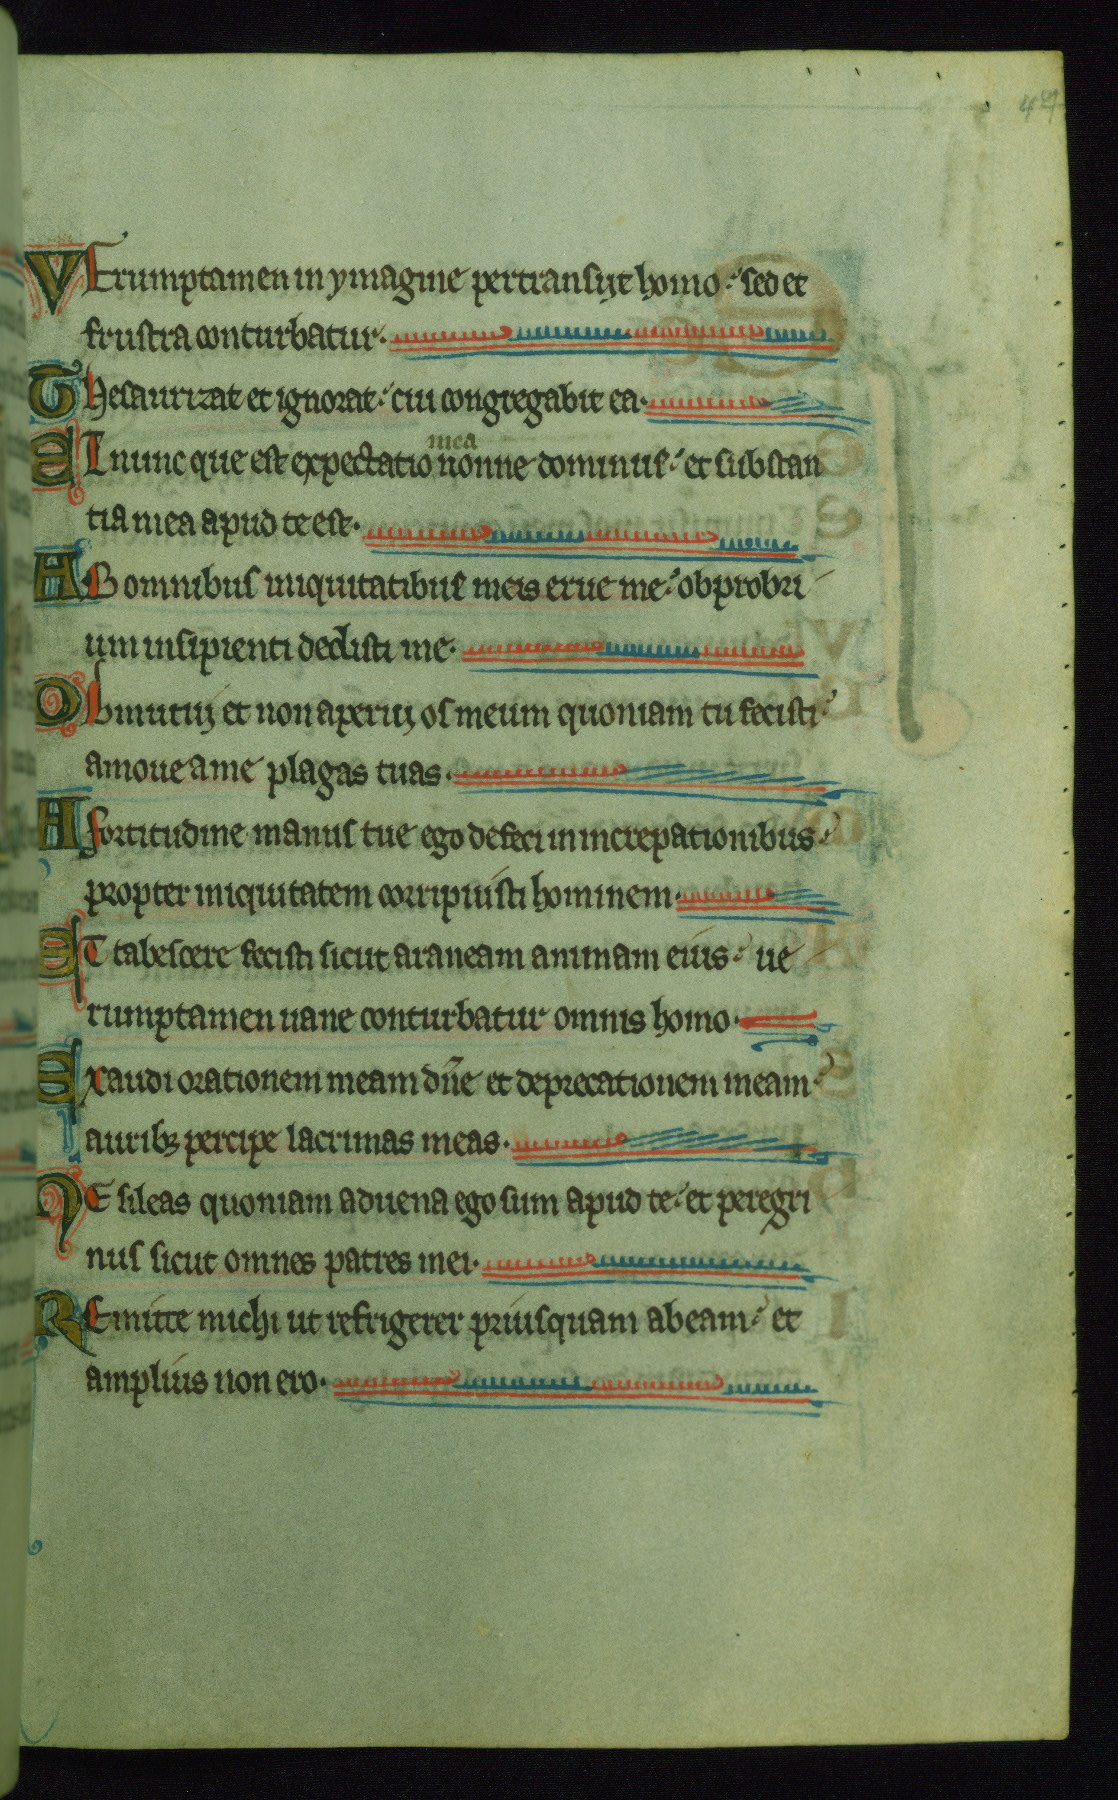 47
VErumptamen in ymagine pertransijt homo: sed et
frustra conturbatur.
Thesaurizat et ignorat: cui congregabit ea.
mea
ET nunc que est expectatio nonne dominus: et substan
tia mea apud te est.
AB omnibus iniquitatibus meis erue me: obprobri
um insipienti dedisti me.
Obmutuj et non aperuj os meum quoniam tu fecisti:
amoue a me plagas tuas.
A fortitudine manus tue ego defeci in increpationibus:
propter iniquitatem corripuisti hominem.
ET tabescere fecisti sicut araneam animam eius: ue
rumptamen uane conturbatur omnis homo.
Exaudi orationem meam dn̄e et deprecationem meam:
auribꝫ percipe lacrimas meas.
NE sileas quoniam aduena ego sum apud te: et peregri
nus sicut omnes patres mei.
REmitte michi ut refrigerer priusquam abeam: et
amplius non ero.